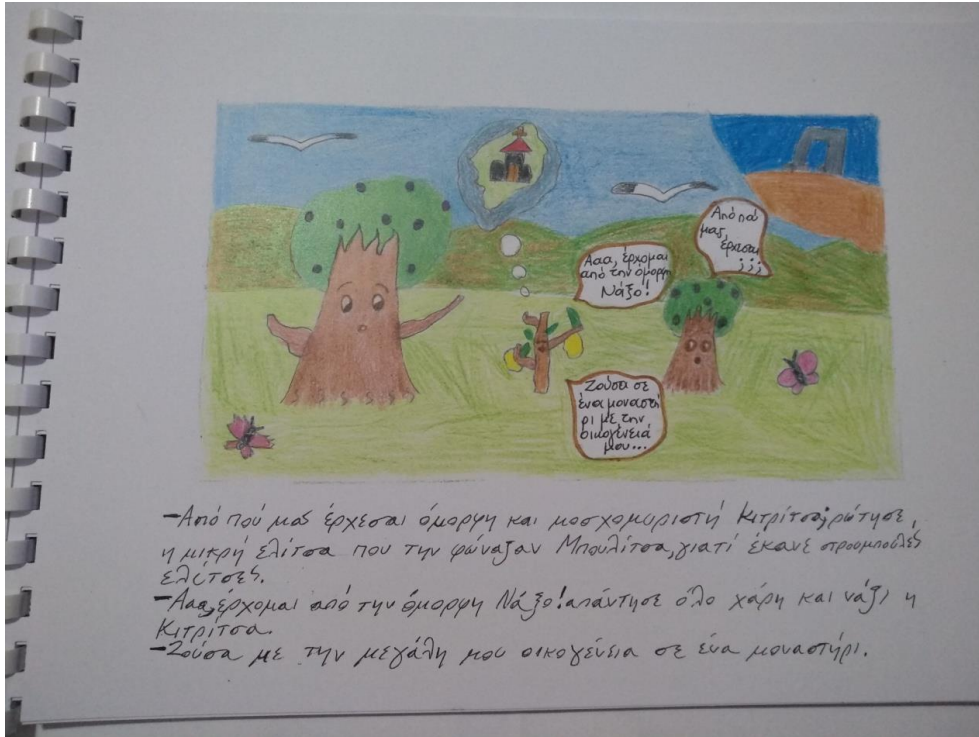 Από πού
μας
έρχεσαι
;;;
Ααα, έρχομαι
από την όμορφη
Νάξο!
Ζούσα σε
ένα μοναστή
ρι με την
οικογένειά
μου...
-Από πού μας έρχεσαι όμορφη και μοσχομυριστή Κιτρίτσα; ρώτησε,
η μικρή ελίτσα που την φώναζαν Μπουλίτσα, γιατί έκανε στρουμπουλές
ελίτσες.
-Ααα, έρχομαι από την όμορφη Νάξο! απάντησε όλο χάρη και νάζι η
Κιτρίτσα.
-Ζούσα με την μεγάλη μου οικογένεια σε ένα μοναστήρι.